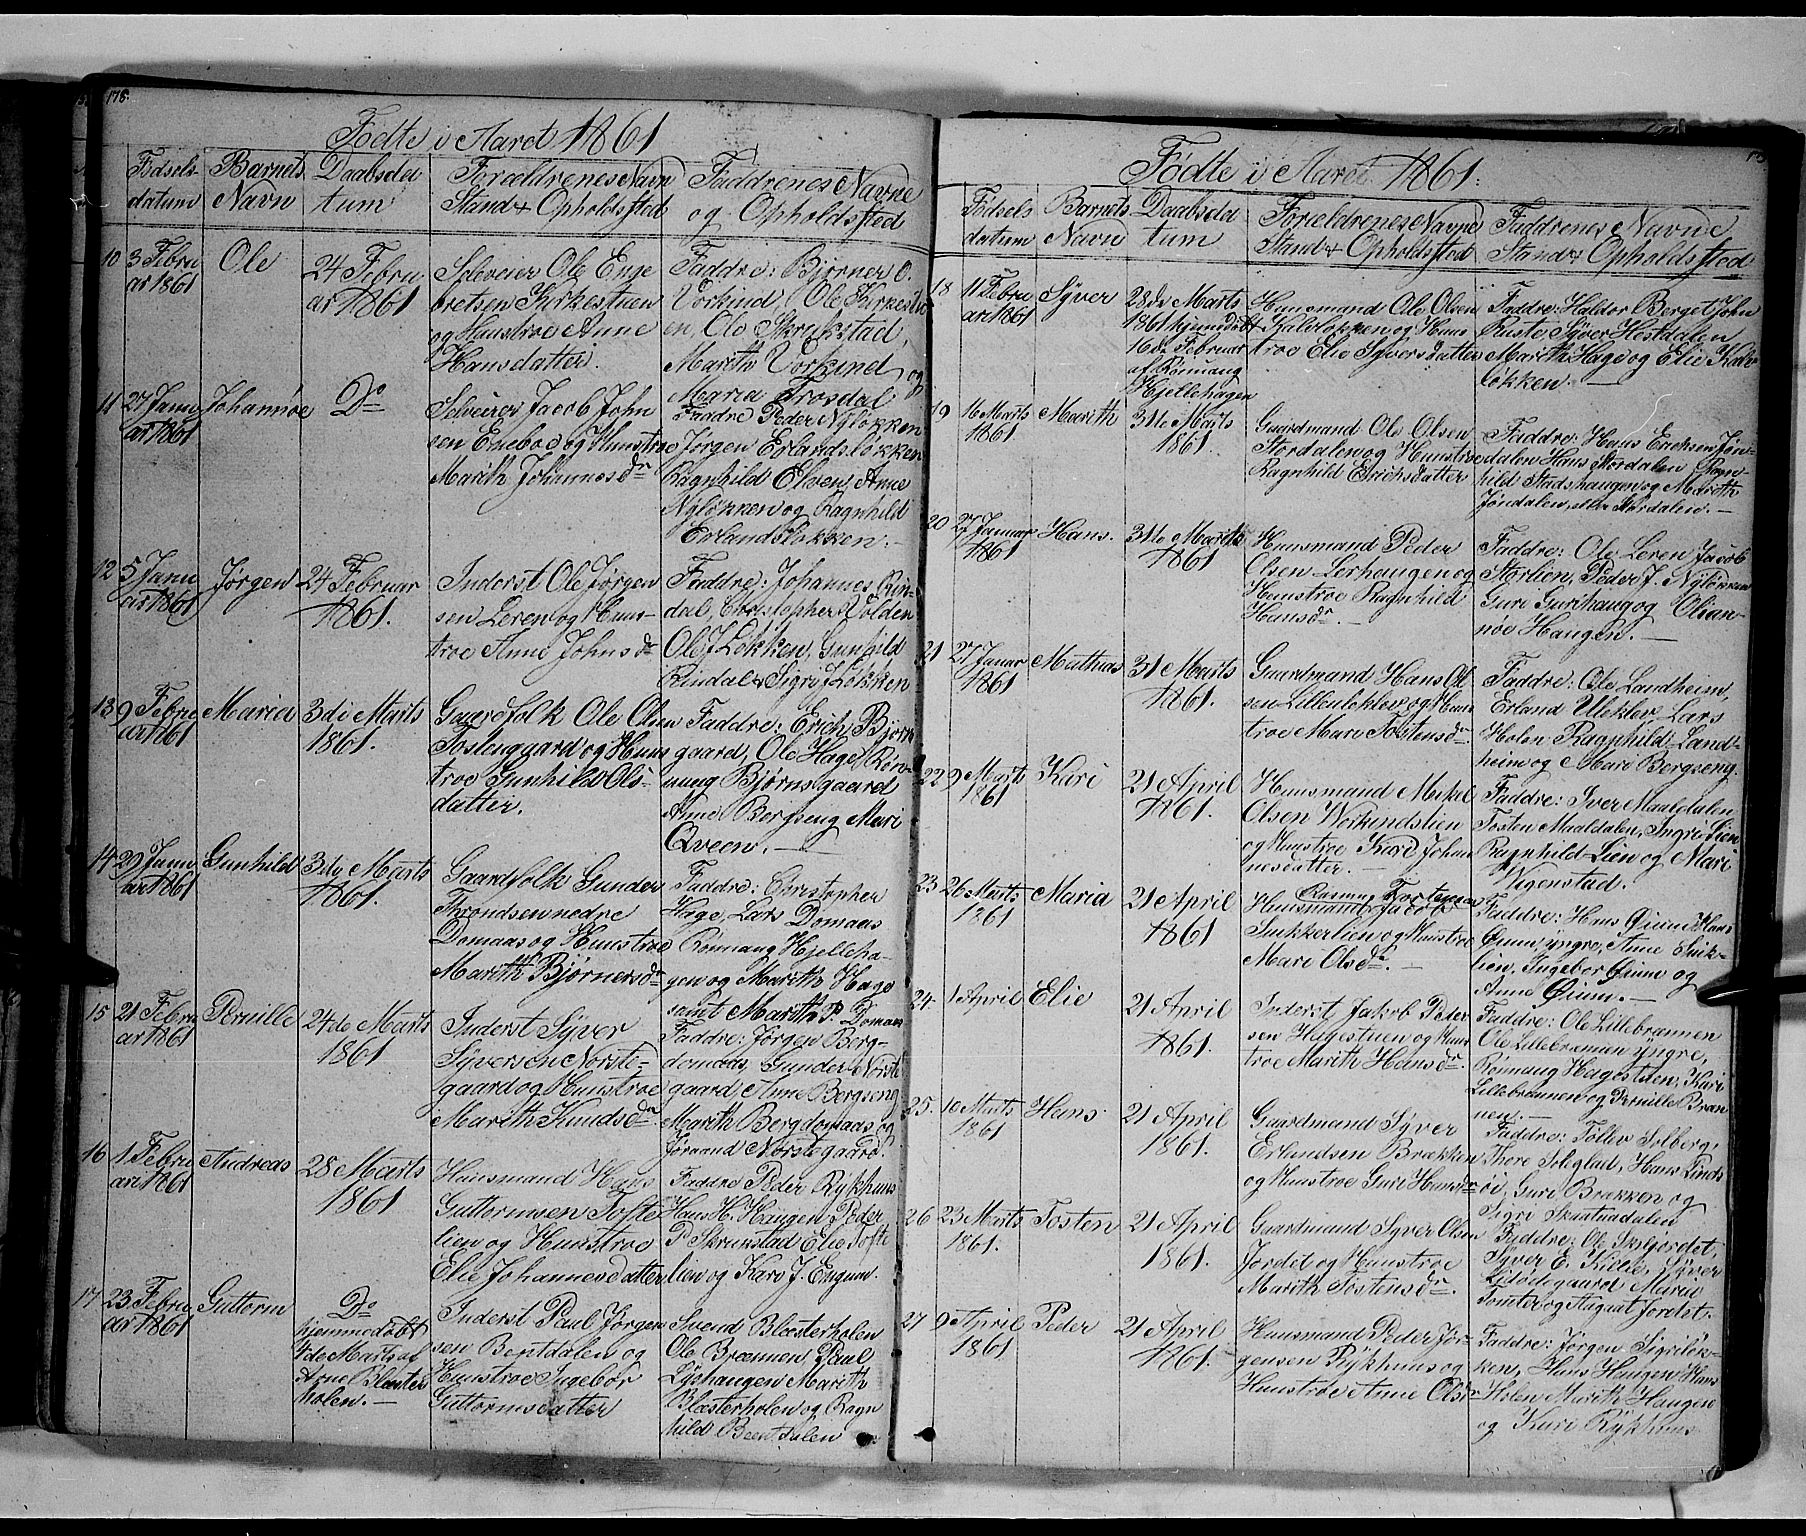 178.
Fødte i Aaret 1861
Fødsels
datum
Barnets
Navn
Daabsda
tum
Forældrenes Navn
Stand & Opholdssted
Faddrenes Navne
og Opholdssted
10 3 Febru
ar 1861
Ole
24 Febru
ar 1861
Selveier Ole Enge
bretsen Kirkestuen
og Hustroe Anne
Hansdatter.
Faddre: Bjørner O.
Vorkind, Ole Kirkestu
en, Ole Skrukstad,
Marith Vorkind og
Maria Trosdal
11 27 Janu
ar 1861
Johannøe
Do
Selveier Jacob John
sen Enebod og Hustroe
Marith Johannesdr
Faddre Peder Nyløkken
Jørgen Erlandsløkken
Ragnhild Elsen, Anne
Nyløkken og Ragnhild
Erlandsløkken.
12 5 Janu
ar 1861
Jørgen
24 Februar
1861.
Inderst Ole Jørgen
sen Leren og Hus
troe Anne Johnsdr
Faddre: Johannes Rin
dal, Christopher Volden
Ole J. Løkken, Gunhild
Rindal & Sigri J. Løkken
13 9 Febru
ar 1861
Maria
3di Marts
1861.
Gaardfolk Ole Olsen
Tostengaard og Hus
troe Gunhild Ols
datter.
Faddre: Erich Bjørn
gaard, Ole Hage, Røn
naug Bjørnsgaard
Anne Bergseng Mari
Qveen.
14 29 Janu
ar 1861
Gunhild
3de Marts
1861.
Gaardfolk Gunder
Throndsen nedre
Domaas og Hustroe
Marith Bjørnersdr
Faddre: Christopher
Hage, Lars Domaas
Rønnaug Hjelleha
gen og Marith Hage
samt Marith P. Domaas
15 21 Febru
ar 1861
Pernille
24de Marts
1861
Inderst Syver
Syversen Norste
gaard og Hustroe
Marith Knudsdr
Faddre: Jørgen Berg
domaas, Gunder Norste
gaard, Anne Bergseng
Marith Bergdomaas og
Jøraand Norstegaard.
16 1 Febru
ar 1861
Andreas
28 Marts
1861
Huusmand Hans
Guttormsen Tofte
lien og Hustroe
Elie Johannesdatter
Faddre Peder Rykhuus
Hans H. Haugen, Peder
P. Skrukstad, Elie Tofte
lien og Kari J. Engum.
17 23 Febru
ar 1861
Guttorm
Do
hjemmedøbt
4de Marts af
Arne Blæster
holen.
Inderst Paul Jørgen
sen Bentdalen og
Hustroe Ingebor
Guttormsdatter
Svend Blæsterholen
Ole Brænnen, Paul
Lyshaugen Marith
Blæsterholen og Ragn
hild Beentdalen
Fødte i Aaret 1861.
Fødsels
datum
Barnets
Navn
Daabsda
tum
Forældrenes Navne
Stand & Opholdssted
Faddrenes Navne
Stand & Opholdssted
18 11 Febru
ar 1861
Syver
28de Marts
1861 hjemdøbt
16de Februar
af Rønnaug
Hjellehagen
Huusmand Ole Olsen
Hus
troe Elie Syversdatter
Faddre: Haldor Berget John
Ruste, Syver Hestdalen
Marith Hage og Elie
løkken.
19 16 Marts
1861
Marith
31te Marts
1861.
Gaardmand Ole Olsen
Stordalen og Hustroe
Ragnhild Erichsdatter
Faddre: Hans Erichsen Jøn
dalen Hans Stordalen Ragn
hild Stadshaugen og Marith
Jøndalen, Stordalen.
20 27 Januar
1861
Hans.
31te Marts
1861.
Huusmand Peder
Olsen Lerhaugen og
Hustroe Ragnhild
Hansdr.
Faddre: Ole Leren Jacob
Storlien, Peder J. Nyløkken
Guri Gurihaug og Olian
nøe Haugen.
21 27 Januar
1861
Mathias
31 Marts
1861.
Gaardmand Hans Ol
sen Lilleulekleiv og Hus
troe Mari Tostensdr
Faddre: Ole Landheim,
Erland Uleklev Lars
Holen Ragnhild Land
heim og Mari Bergseng.
22 9 Marts
1861
Kari
21 April
1861.
Huusmand Mikel
Olsen Workindslien
og Hustroe Kari Johan
nesdatter.
Faddre: Iver Maaldalen
Tosten Maaldalen, Ingri Lien
Ragnhild Lien og Mari
Vigenstad.
23 26 Marts
1861
Maria
21 April
1861
Rasmus Tostensen
Huusmand Jacob
Sukkerlien og Hustroe
Mari Olsdr.
Faddre: Hans Øium Hans
Øium yngre, Anne Suk
lien, Ingebor Øium og
Anne Øium.
24. 1 April
Elie
21 April
1861.
Inderst Jakob Peder
sen Hagestuen og Hus
troe Marith Hansdr.
Faddre: Ole Lillebrænnen
Ole Lillebrænnen yngre,
Rønnaug Hagestuen, Kari
Lillebrænnen og Pernille Bræn
nen.
25. 10 Marts
1861
Hans
21 April
1861.
Gaardmand Syver
Erlandsen Brækken
og Hustroe Guri Hansdr
Faddre: Tollev Selberg,
Thore Seleglad, Hans Linds
øi, Guri Brækken og
Sigri Skaatuudalen
26 23 Marts
1861.
Tosten
21 April
1861.
Gaardmand Syver Olsen
Jordet og Hustroe
Marith Tostensdr.
Faddre: Ole Skjordet,
Syver E. Kilde, Syver
Maria
Tomter og August Jordet.
27 9 April
1861
Peder
21 April
1861.
Huusmand Peder Jør
gensen Rykhuus og
Hustroe Anne Olsdr
Faddre: Jørgen Sigriløk
ken, Hans Haugen Hans
Holen Marith Haugen
og Kari Rykhuus